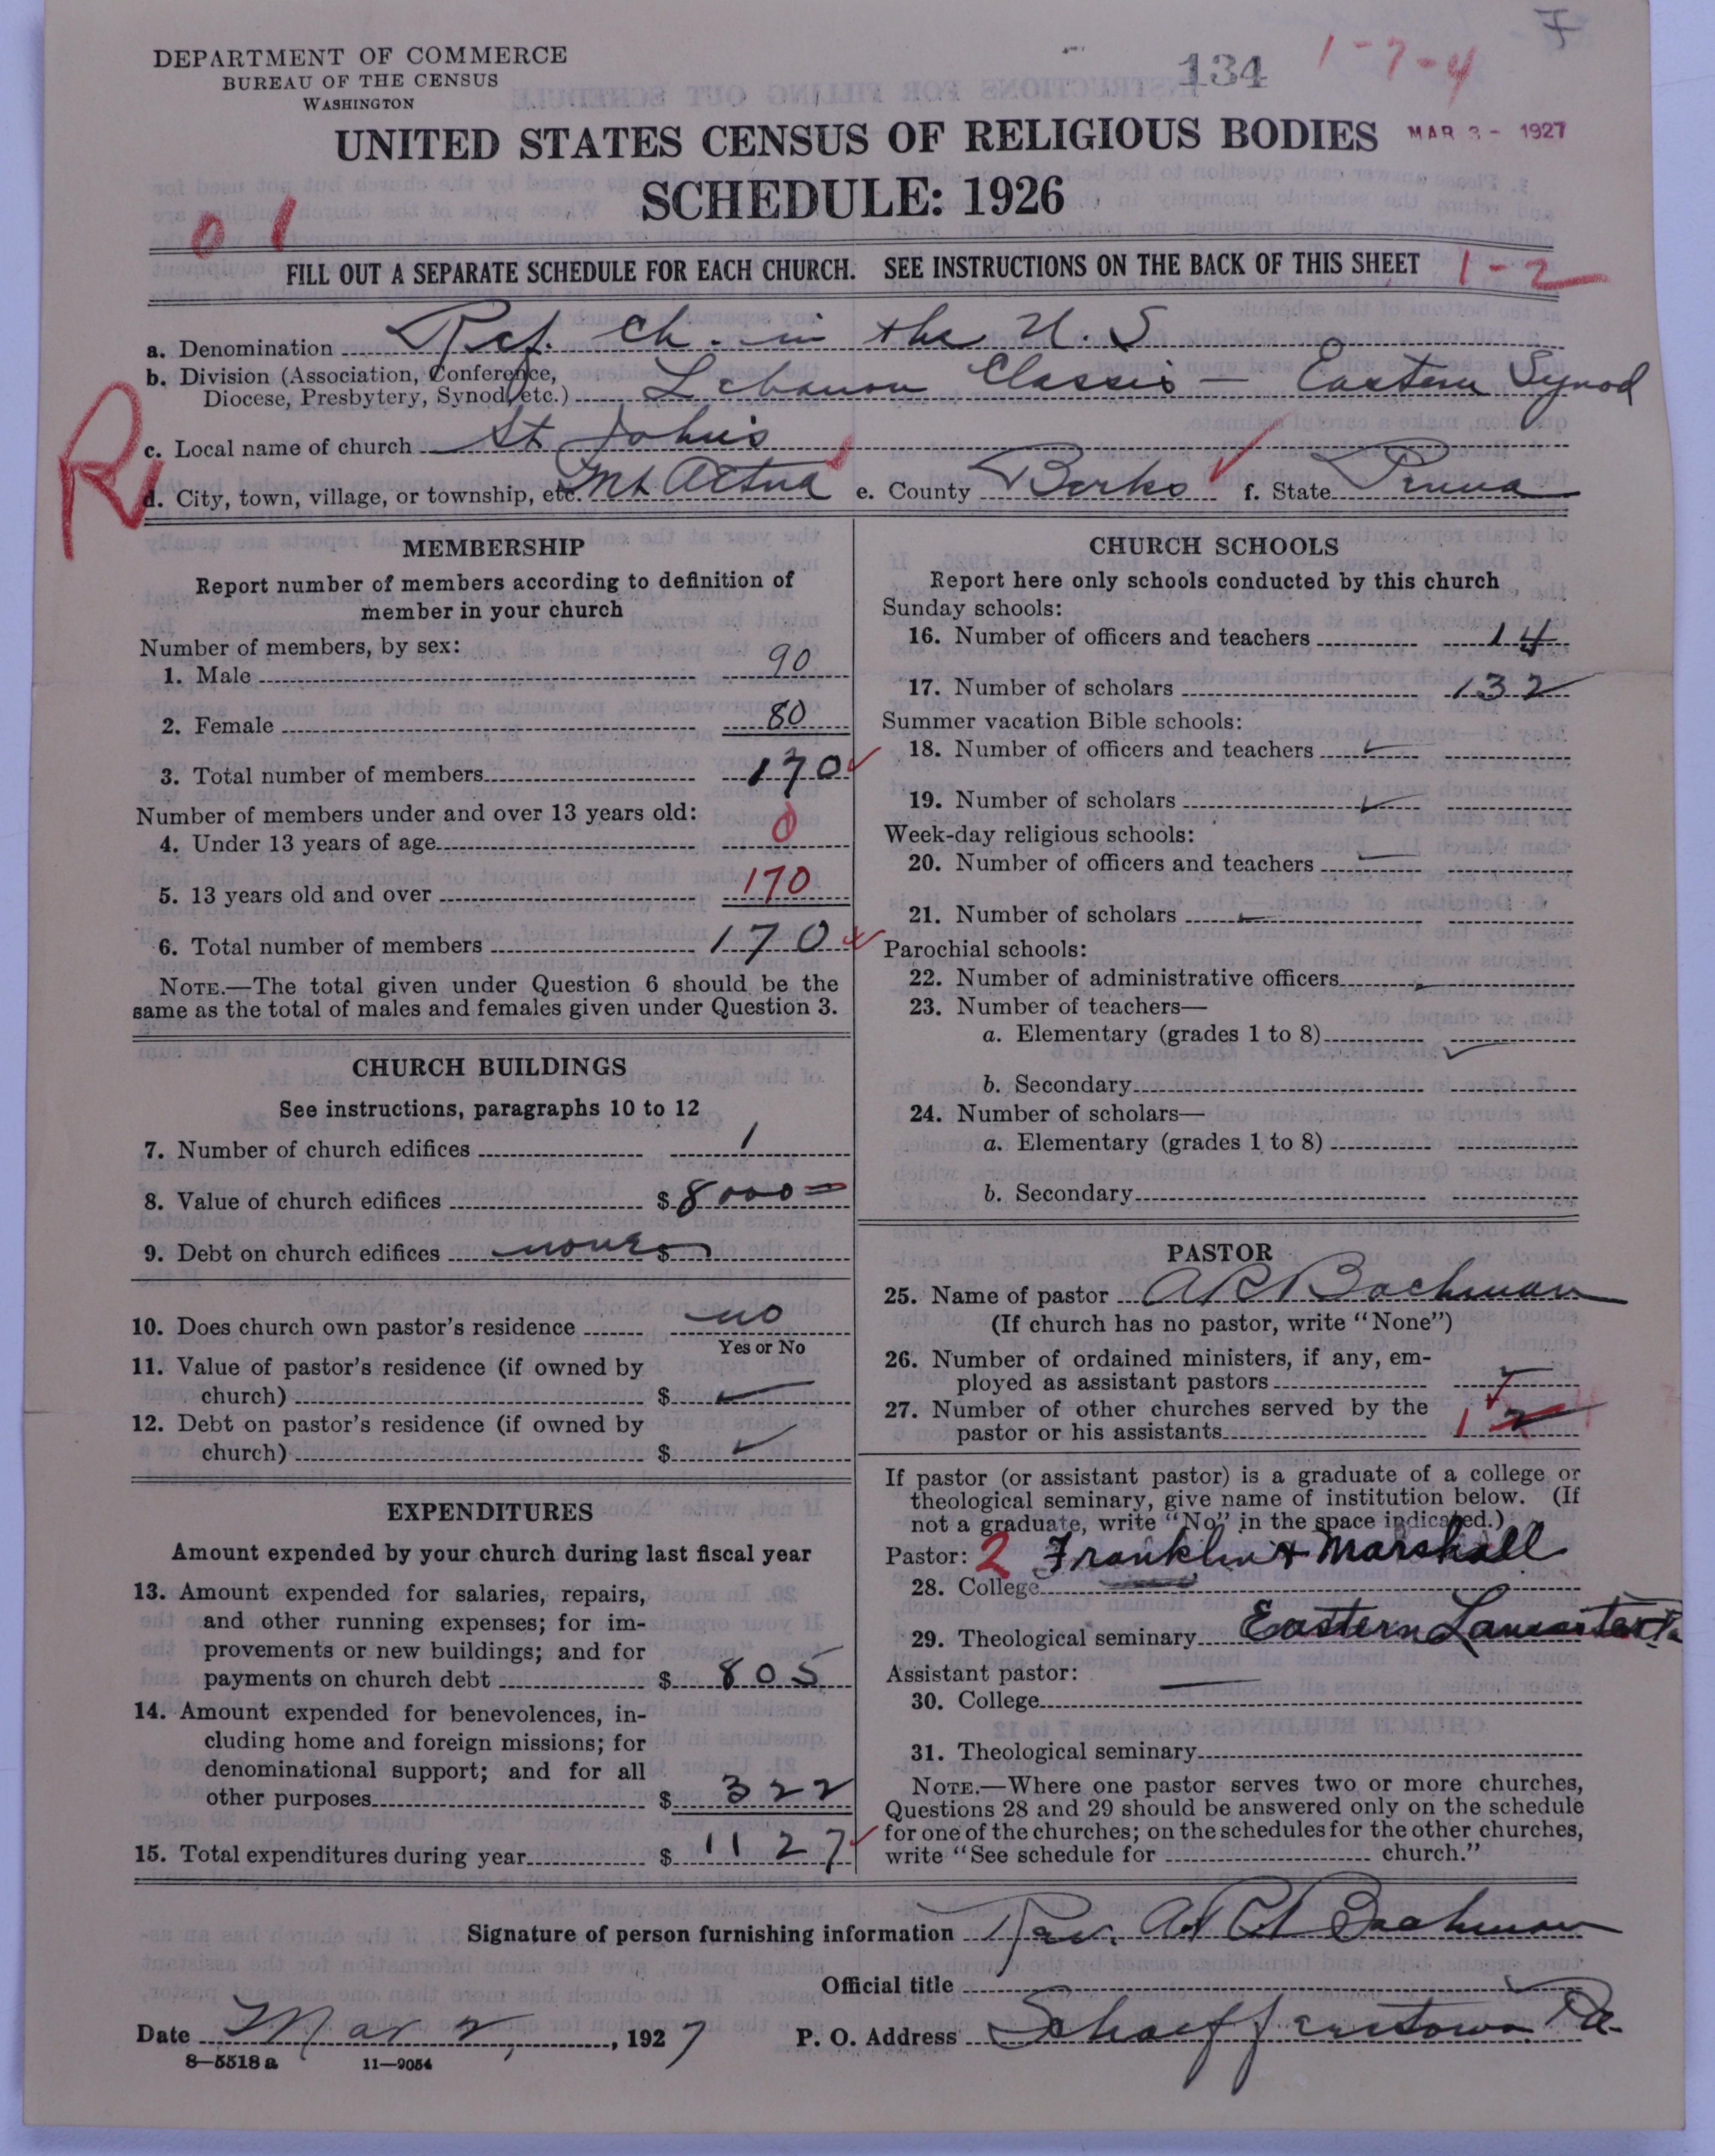 F
DEPARTMENT OF COMMERCE
BUREAU OF THE CENSUS
WASHINGTON
134
1-7-4
UNITED STATES CENSUS OF RELIGIOUS BODIES
MAR 3 - 1927
SCHEDULE: 1926
0 1
FILL OUT A SEPARATE SCHEDULE FOR EACH CHURCH. SEE INSTRUCTIONS ON THE BACK OF THIS SHEET
1-2
a. Denomination Ref. Ch. in the U.S
b. Division (Association, Conference,
Diocese, Presbytery, Synod, etc.) Lebanon Classis - Eastern Synod
c. Local name of church St John's
R
d. City, town, village, or township, etc. Mt Aetna e. County Berks f. State Penna
MEMBERSHIP
Report number of members according to definition of
member in your church
Number of members, by sex:
1. Male 90
2. Female 80
3. Total number of members 170
Number of members under and over 13 years old:
4. Under 13 years of age 0
5. 13 years old and over 170
6. Total number of members 170
NOTE.—The total given under Question 6 should be the
same as the total of males and females given under Question 3.
CHURCH BUILDINGS
See instructions, paragraphs 10 to 12
7. Number of church edifices 1
8. Value of church edifices $ 8000
9. Debt on church edifices none $
10. Does church own pastor's residence no
Yes or No
11. Value of pastor's residence (if owned by
church) $
12. Debt on pastor's residence (if owned by
church) $
EXPENDITURES
Amount expended by your church during last fiscal year
13. Amount expended for salaries, repairs,
and other running expenses; for im-
provements or new buildings; and for
payments on church debt $ 805
14. Amount expended for benevolences, in-
cluding home and foreign missions; for
denominational support; and for all
other purposes $ 322
15. Total expenditures during year $ 1127
CHURCH SCHOOLS
Report here only schools conducted by this church
Sunday schools:
16. Number of officers and teachers 14
17. Number of scholars 132
Summer vacation Bible schools:
18. Number of officers and teachers
19. Number of scholars
Week-day religious schools:
20. Number of officers and teachers
21. Number of scholars
Parochial schools:
22. Number of administrative officers
23. Number of teachers—
a. Elementary (grades 1 to 8)
b. Secondary
24. Number of scholars—
a. Elementary (grades 1 to 8)
b. Secondary
PASTOR
25. Name of pastor A R Bachman
(If church has no pastor, write "None")
26. Number of ordained ministers, if any, em-
ployed as assistant pastors
27. Number of other churches served by the
pastor or his assistants 1 2
If pastor (or assistant pastor) is a graduate of a college or
theological seminary, give name of institution below. (If
not a graduate, write "No" in the space indicated.)
Pastor: 2 Franklin + Marshall
28. College
29. Theological seminary Eastern Lancaster Pa
Assistant pastor:
30. College
31. Theological seminary
NOTE.—Where one pastor serves two or more churches,
Questions 28 and 29 should be answered only on the schedule
for one of the churches; on the schedules for the other churches,
write "See schedule for church."
Signature of person furnishing information Rev. A R Bachman
Official title
Date Mar 2, 1927 P. O. Address Schaefferstown Pa.
8—5518 a 11—9054